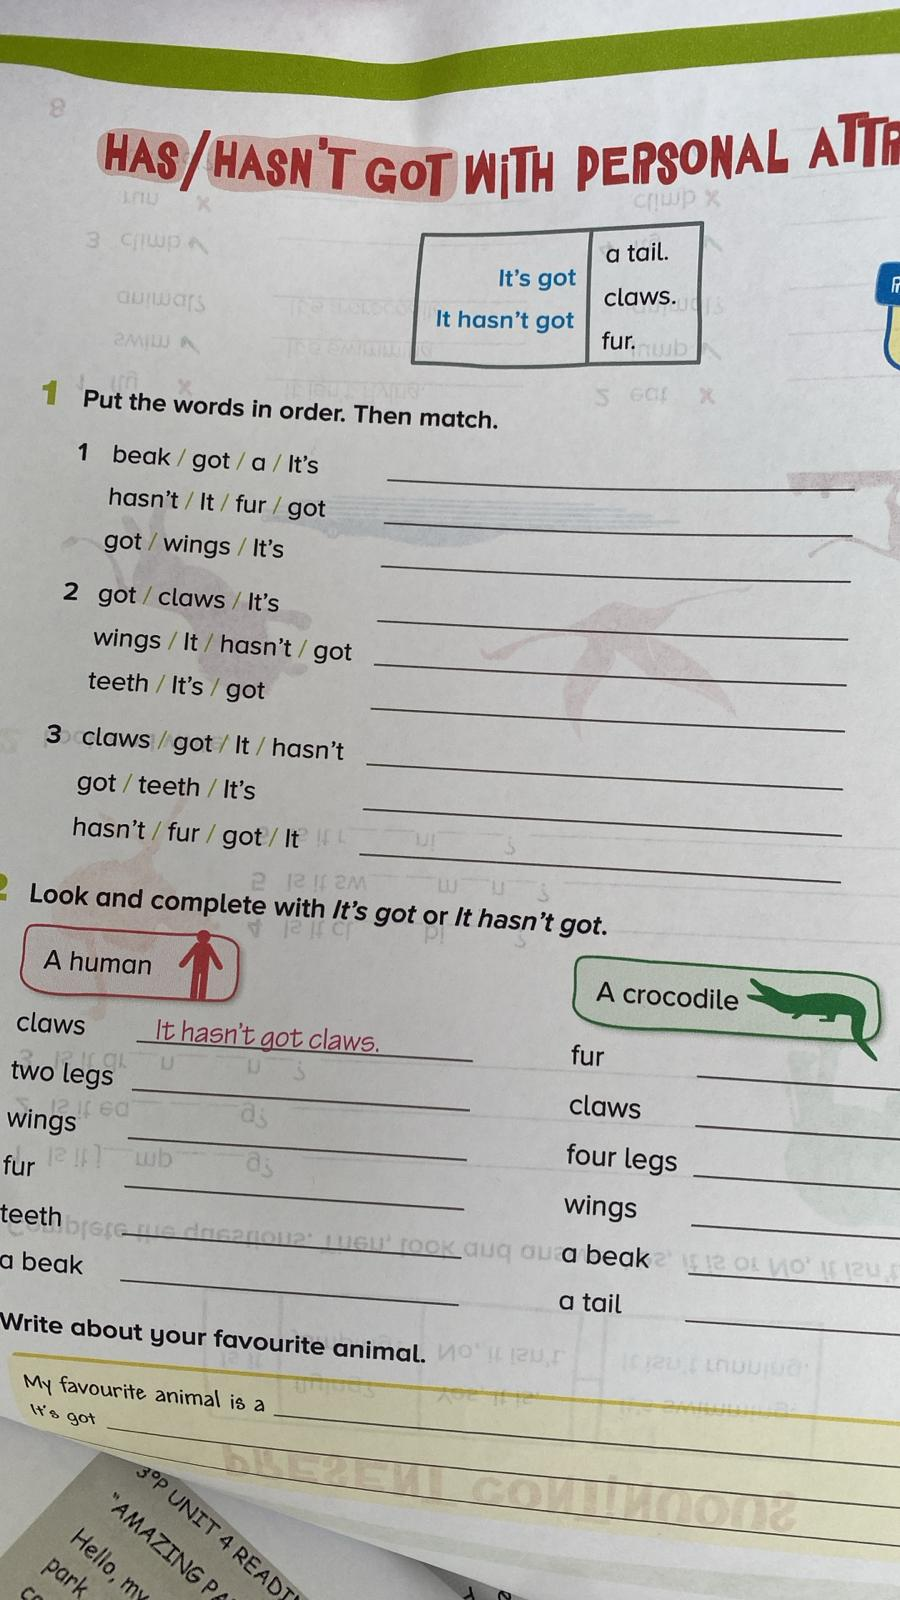 HAS/HASN'T GOT WITH PERSONAL
It's got
It hasn't got
a tail.
claws.
fur.
1 Put the words in order. Then match.
1 beak / got / a / It's
hasn't / It / fur / got
got / wings / It's
2 got / claws / It's
wings / It / hasn't / got
teeth / It's / got
3 claws / got / It / hasn't
got / teeth / It's
hasn't / fur / got / It
2 Look and complete with It's got or It hasn't got.
A human
claws It hasn't got claws.
two legs
wings
fur
teeth
a beak
A crocodile
fur
claws
four legs
wings
a beak
a tail
Write about your favourite animal.
My favourite animal is a
It's got
PRESENT CONTINUOUS
3ºP UNIT 4
"AMAZING
Hello, my
park